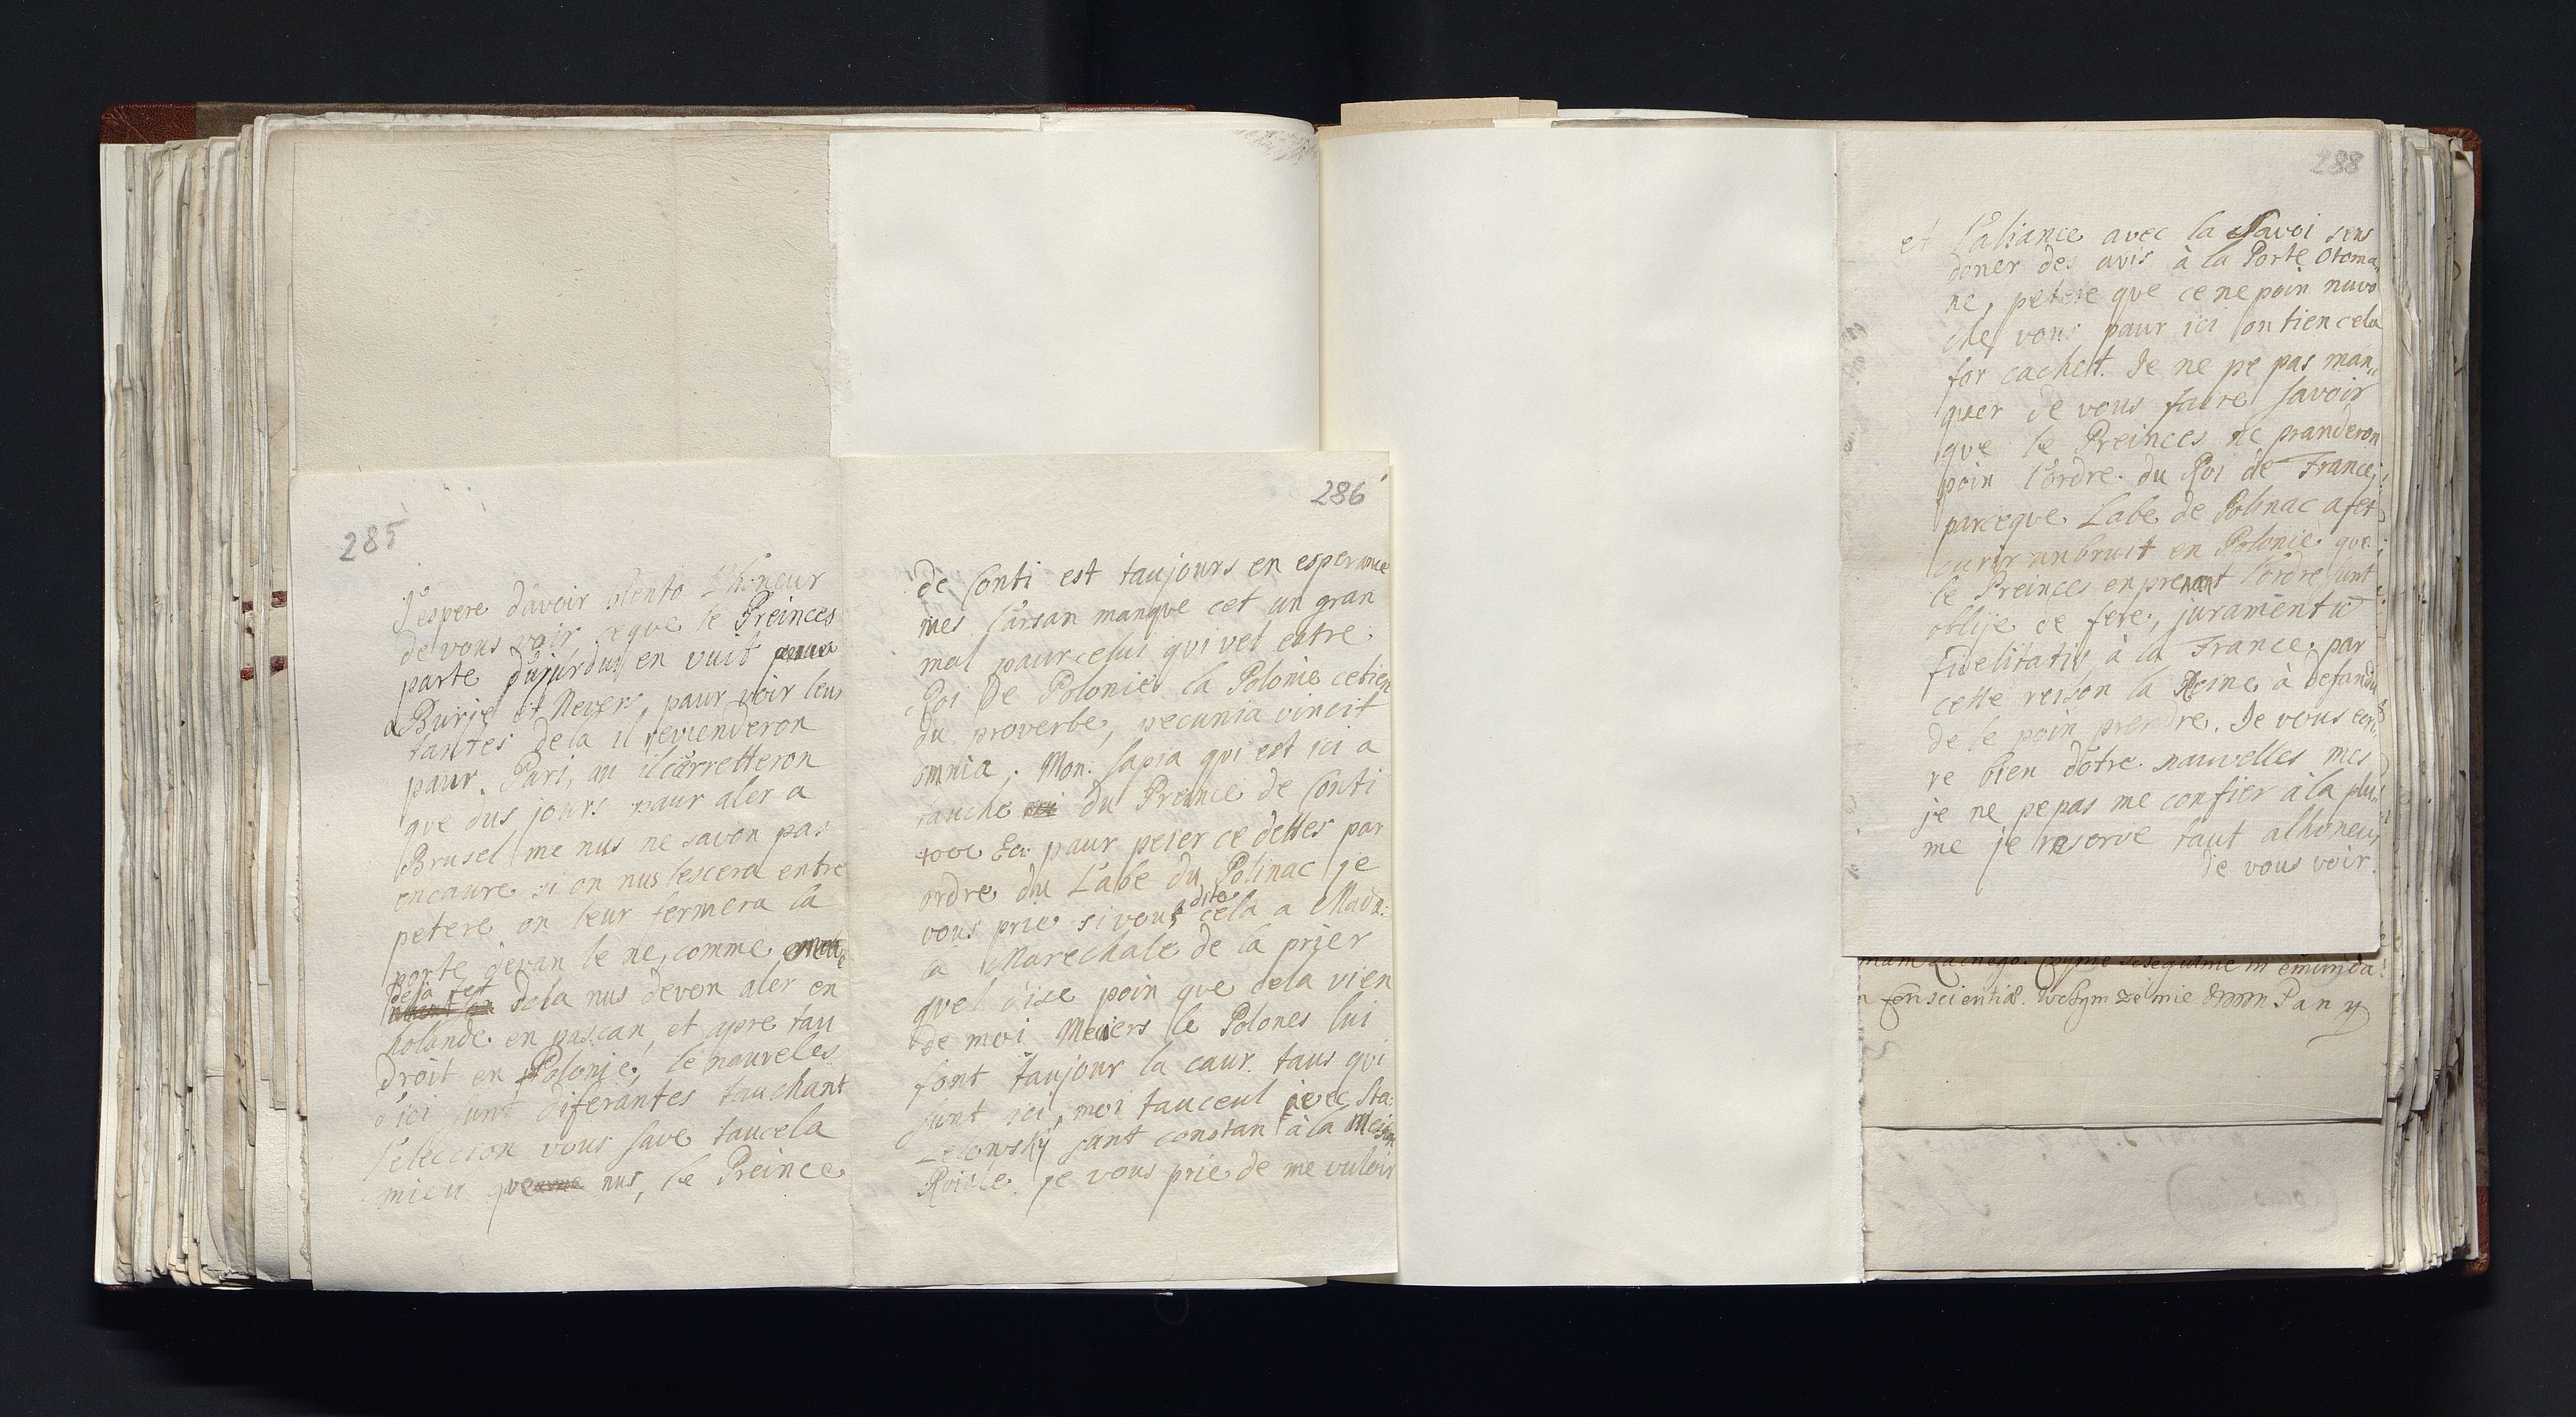 285
J'espere d'avoir biento L'honeur
de vous voir ceque le Preinces
parte dujurduy en vuit
a Burje et Nevers, paur voir leur
tantes dela il revienderon
paur Pari, au il carretteron
que dus jours paur aler a
Brusel me nus ne savon pas
encaure si on nus lescera entre
petere on leur fermera la
porte devan le ne, comme
deja fest
dela nus deven aler en
holande en pascan, et apre tau
droit en Polonie, le nauveles
d'ici sunt diferantes tauchant
l'eleccion vous save taucela
mieu que nus, le Preince
286
de Conti est taujours en esperance
mes l'arsan manque cet un gran
mal paur celui qui vet estre
Roi De Polonie la Polonie cetien
du proverbe, pecunia vincit
omnia. Mon: Sapia qui est ici a
tauche du Preince de Conti
Ec: paur peier ce dettes par
ordre du L'abe du Polinac je
vous prie si vous dite cela a Mada:
la Marechale de la prier
quel dise poin que dela vien
de moi Meciers le Polones lui
font taujour la caur taus qui
sunt ici, moi tauceul avec Sta:
Zelowsky sunt constan à la Meson
Roiale je vous prie de me vuloir
288
et l'aliance avec la Savoi sens
doner des avis à la Porte Otoma
ne, petere que ce ne poin nuvo
che vous paur ici on tien cela
for cachett. Je ne pe pas man„
quer de vous faire savoir
que le Preinces ne pranderon
poin l'ordre du Roi de France;
parceque Labe de Polinac a fet
curir un bruit en Polonie que
le Preinces en prenant l'ordre sunt
oblije de fere, juramentu
fidelitatis à la France par
cette reison la Reine à defandu
de le poin prendre. Je vous ecri„
re bien dotre nauvelles mes
je ne pe pas me confier à la plu„
me je reserve taut alhoneur
de vous voir.
conscientiæ. mie Pan y